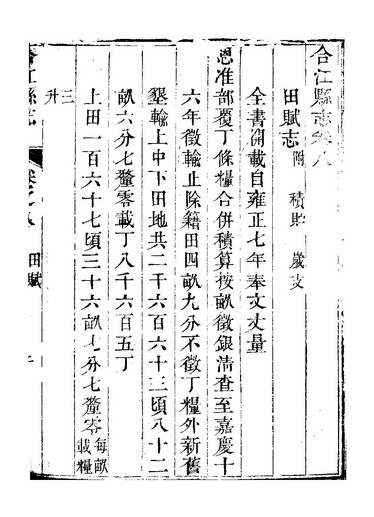 合江縣志卷八
田賦志 附 積貯 歲支
全書開載自雍正七年奉文丈量
恩准部覆丁條糧合併積算按畝徵銀清查至嘉慶十
六年徵輸止除籍田四畝九分不徵丁糧外新舊
墾輸上中下田地共二千六百六十三頃八十二
畝六分七釐零載丁八千六百五丁
上田一百六十七頃三十六畝七分七釐零 每畝載糧
三升
合江縣志
卷之八
田賦
一